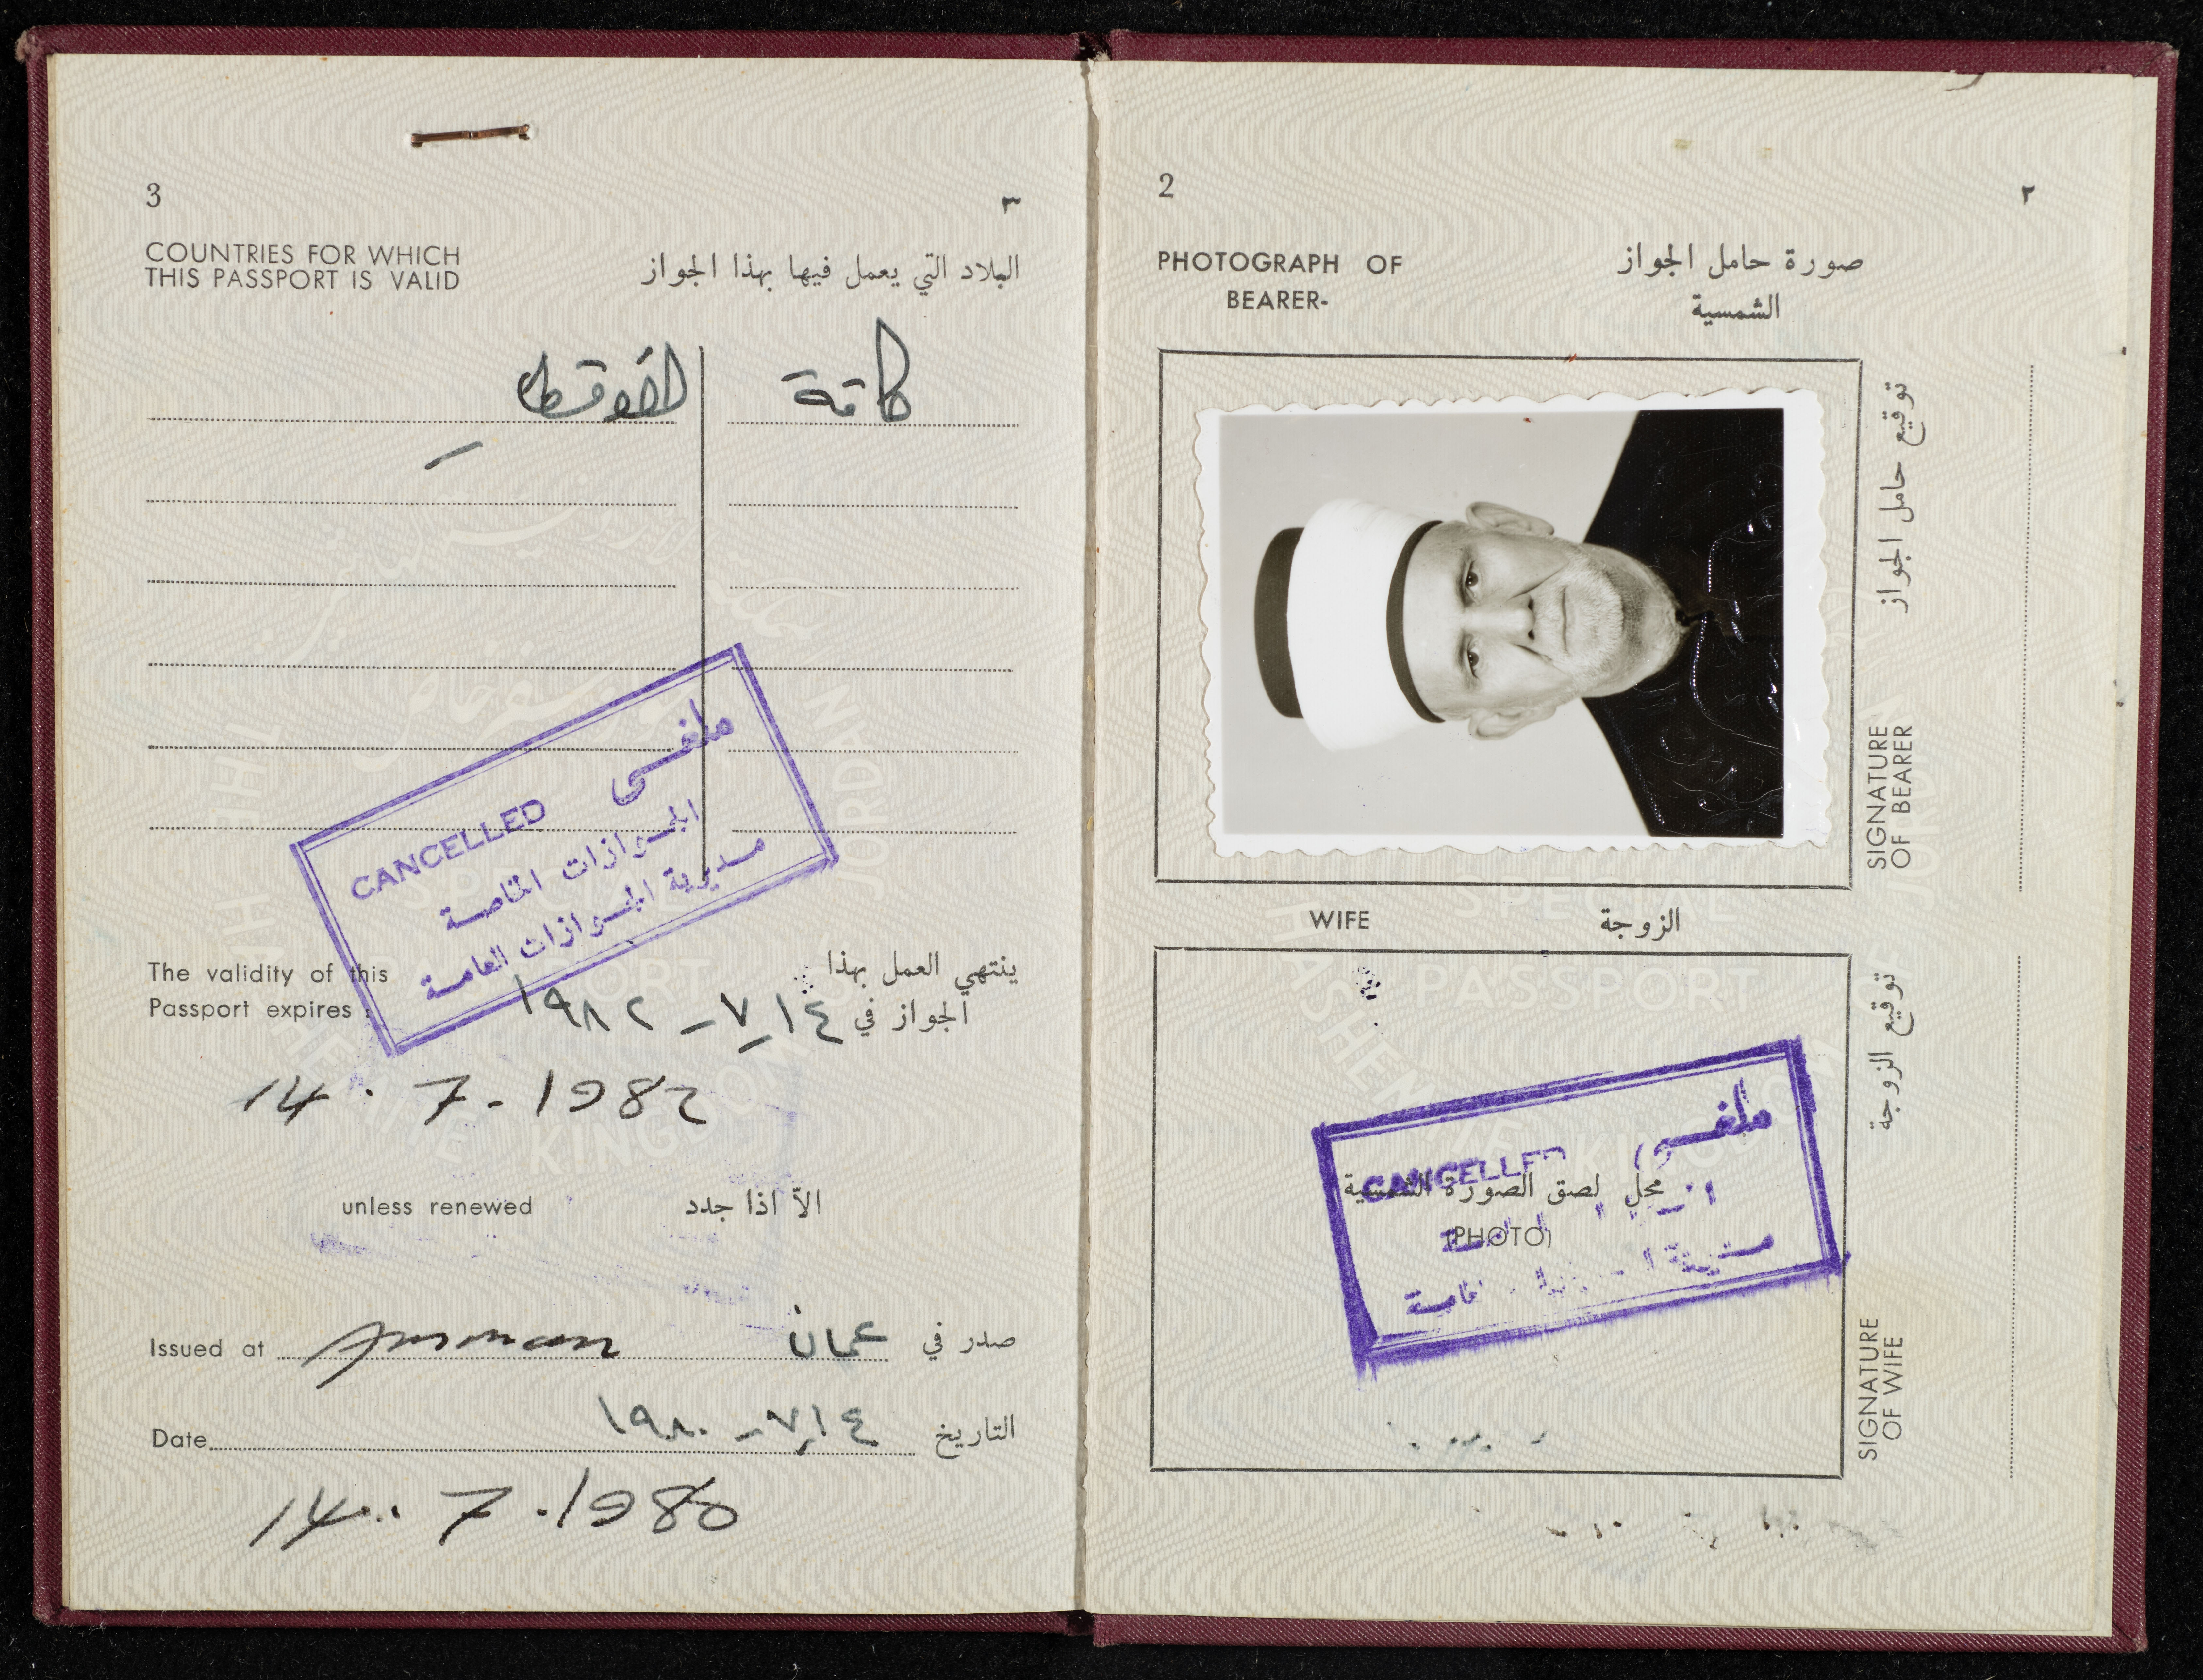 3 ٣
COUNTRIES FOR WHICH
THIS PASSPORT IS VALID
البلاد التي يعمل فيها بهذا الجواز
كافة
ملغى
CANCELLED
الجوازات الخاصة
مديرية الجوازات العامة
The validity of this
Passport expires :
ينتهي العمل بهذا
الجواز في ١٤-٧-١٩٨٢
14.7-1982
unless renewed الاّ اذا جدد
Issued at Amman عمان صدر في
Date ١٤-٧-١٩٨٠ التاريخ
14.7.1980
2 ٢
PHOTOGRAPH OF
BEARER-
صورة حامل الجواز
الشمسية
توقيع حامل الجواز
SIGNATURE
OF BEARER
WIFE الزوجة
توقيع الزوجة
SIGNATURE
OF WIFE
ملغى
CANCELLED
محل لصق الصورة الشمسية
(PHOTO)
SPECIAL
PASSPORT
HASHEMITE KINGDOM
JORDAN